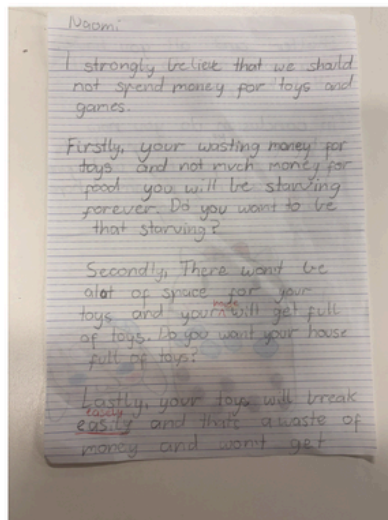 Naomi
I strongly believe that we should
not spend money for toys and
games.
Firstly, your wasting money for
toys and not much money for
food you will be starving
forever. Do you want to be
that starving?
Secondly, There won't be
alot of space for your
toys and your will get full
of toys. Do you want your house
full of toys?
Lastly, your toys will break
easely
easily and thats a waste of
money and won't get